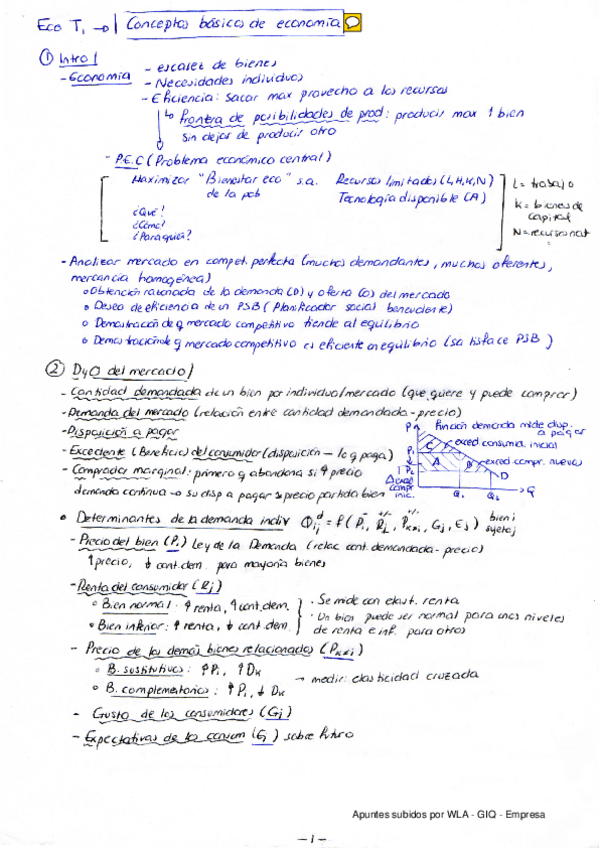 Eco T1 → | Conceptos básicos de economía
① Intro /
- Economía - escasez de bienes
- Necesidades individuos
- Eficiencia: sacar max provecho a los recursos
↳ Frontera de posibilidades de prod: producir max 1 bien
sin dejar de producir otro
- P.E.C (Problema económico central)
Maximizar "Bienestar eco" s.a. Recursos limitados (L,H,K,N)
de la pob Tecnología disponible (A)
¿Qué?
¿Cómo?
¿Para quién?
L = trabajo
K = bienes de
capital
N = recursos nat
- Analizar mercado en compet. perfecta (muchos demandantes, muchos oferentes,
mercancía homogénea)
• Obtención razonada de la demanda (D) y oferta (O) del mercado
• Deseo de eficiencia de un PSB (Planificador social benevolente)
• Demostración de q mercado competitivo tiende al equilibrio
• Demostración de q mercado competitivo es eficiente en equilibrio (satisface PSB)
② D y O del mercado /
- Cantidad demandada de un bien por individuo/mercado (que quiere y puede comprar)
- Demanda del mercado (relación entre cantidad demandada - precio)
- Disposición a pagar
- Excedente (Beneficio) del consumidor (disposición - lo q paga)
- Comprador marginal: primero q abandona si ↑ precio
demanda continua → su disp a pagar = precio partida bien
P Función demanda mide disp.
a pagar
C exced consumid. inicial
P1
A B exced compr. nuevos
P2
D
Δ exced
compr
inic.
Q1 Q2 Q
• Determinantes de la demanda indiv Qijᵈ = f (Pi⁻, Rj⁺/⁻, Pk≠i⁺/⁻, Gj, Ej) bien i
sujeto j
- Precio del bien (Pi) Ley de la Demanda (relac cant. demandada - precio)
↑ precio, ↓ cant. dem. para mayoría bienes
- Renta del consumidor (Rj)
• Bien normal: ↑ renta, ↑ cant. dem.
• Bien inferior: ↑ renta, ↓ cant. dem.
· Se mide con elast. renta
· Un bien puede ser normal para unos niveles
de renta e inf. para otros
- Precio de los demás bienes relacionados (Pk≠i)
• B. sustitutivos: ↑ Pi, ↑ Dk
• B. complementarios: ↑ Pi, ↓ Dk
→ medir: elasticidad cruzada
- Gusto de los consumidores (Gj)
- Expectativas de los consum (Ej) sobre futuro
Apuntes subidos por WLA - GIQ - Empresa
- 1 -